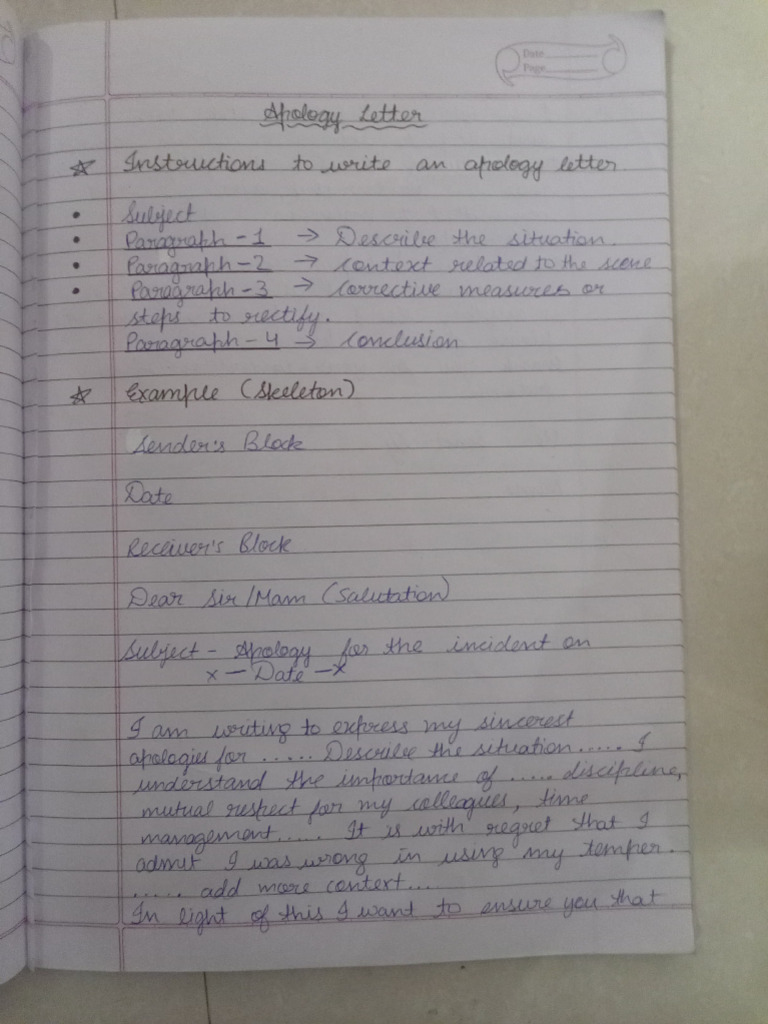 Date
Page
Apology Letter
☆ Instructions to write an apology letter
• Subject
• Paragraph - 1 → Describe the situation.
• Paragraph - 2 → Context related to the scene
• Paragraph - 3 → Corrective measures or
steps to rectify.
Paragraph - 4 → Conclusion
☆ Example (Skeleton)
Sender's Block
Date
Receiver's Block
Dear Sir/Mam (Salutation)
Subject - Apology for the incident on
x — Date — x
I am writing to express my sincerest
apologies for ..... Describe the situation ..... I
understand the importance of ..... discipline,
mutual respect for my colleagues, time
management ..... It is with regret that I
admit I was wrong in using my temper.
..... add more context....
In light of this I want to ensure you that